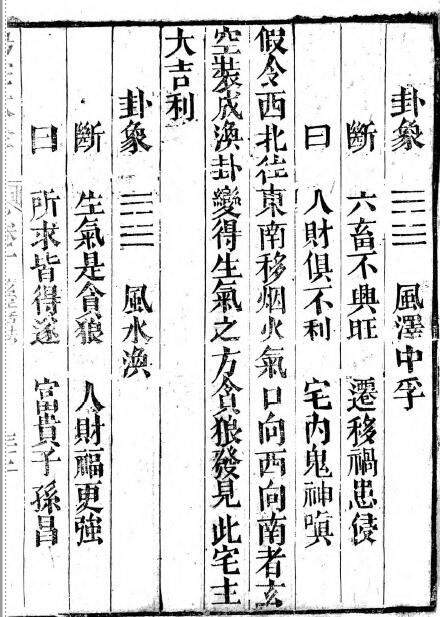 卦象 ䷼ 風澤中孚
斷 六畜不興旺 遷移禍患侵
曰 人財俱不利 宅內鬼神嗔
假令西北往東南移烟火氣口向西向南者玄
空裝成渙卦變得生氣之方貪狼發見此宅主
大吉利
卦象 ䷺ 風水渙
斷 生氣是貪狼 人財福更強
曰 所求皆得遂 富貴子孫昌